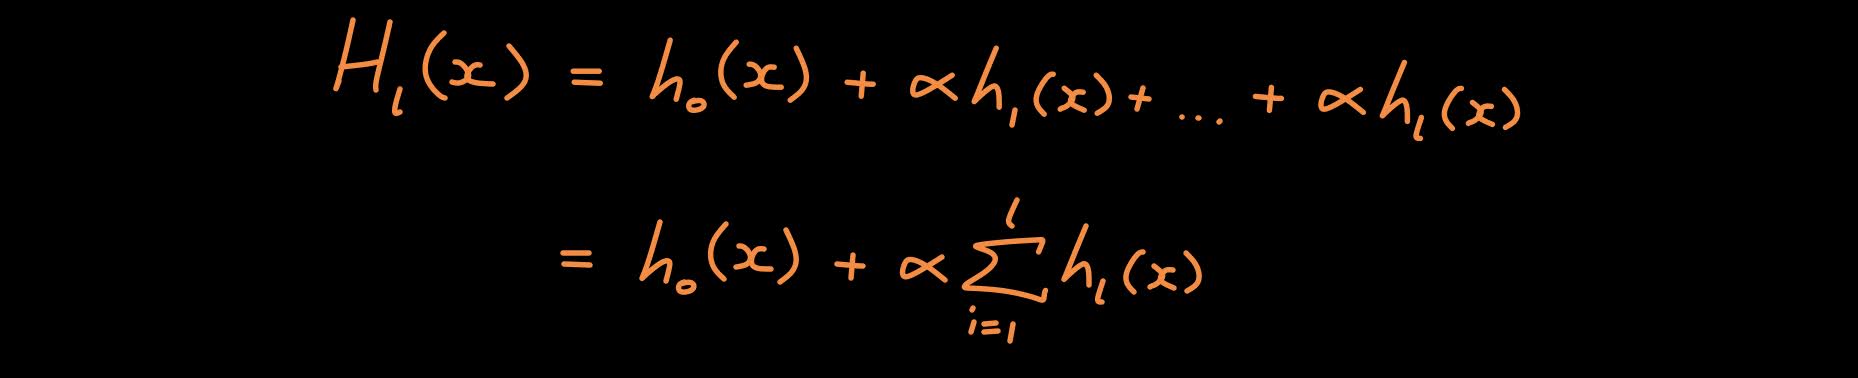 H_l(x) = h_0(x) + αh_1(x) + ... + αh_l(x)
= h_0(x) + α∑_{i=1}^{l} h_l(x)